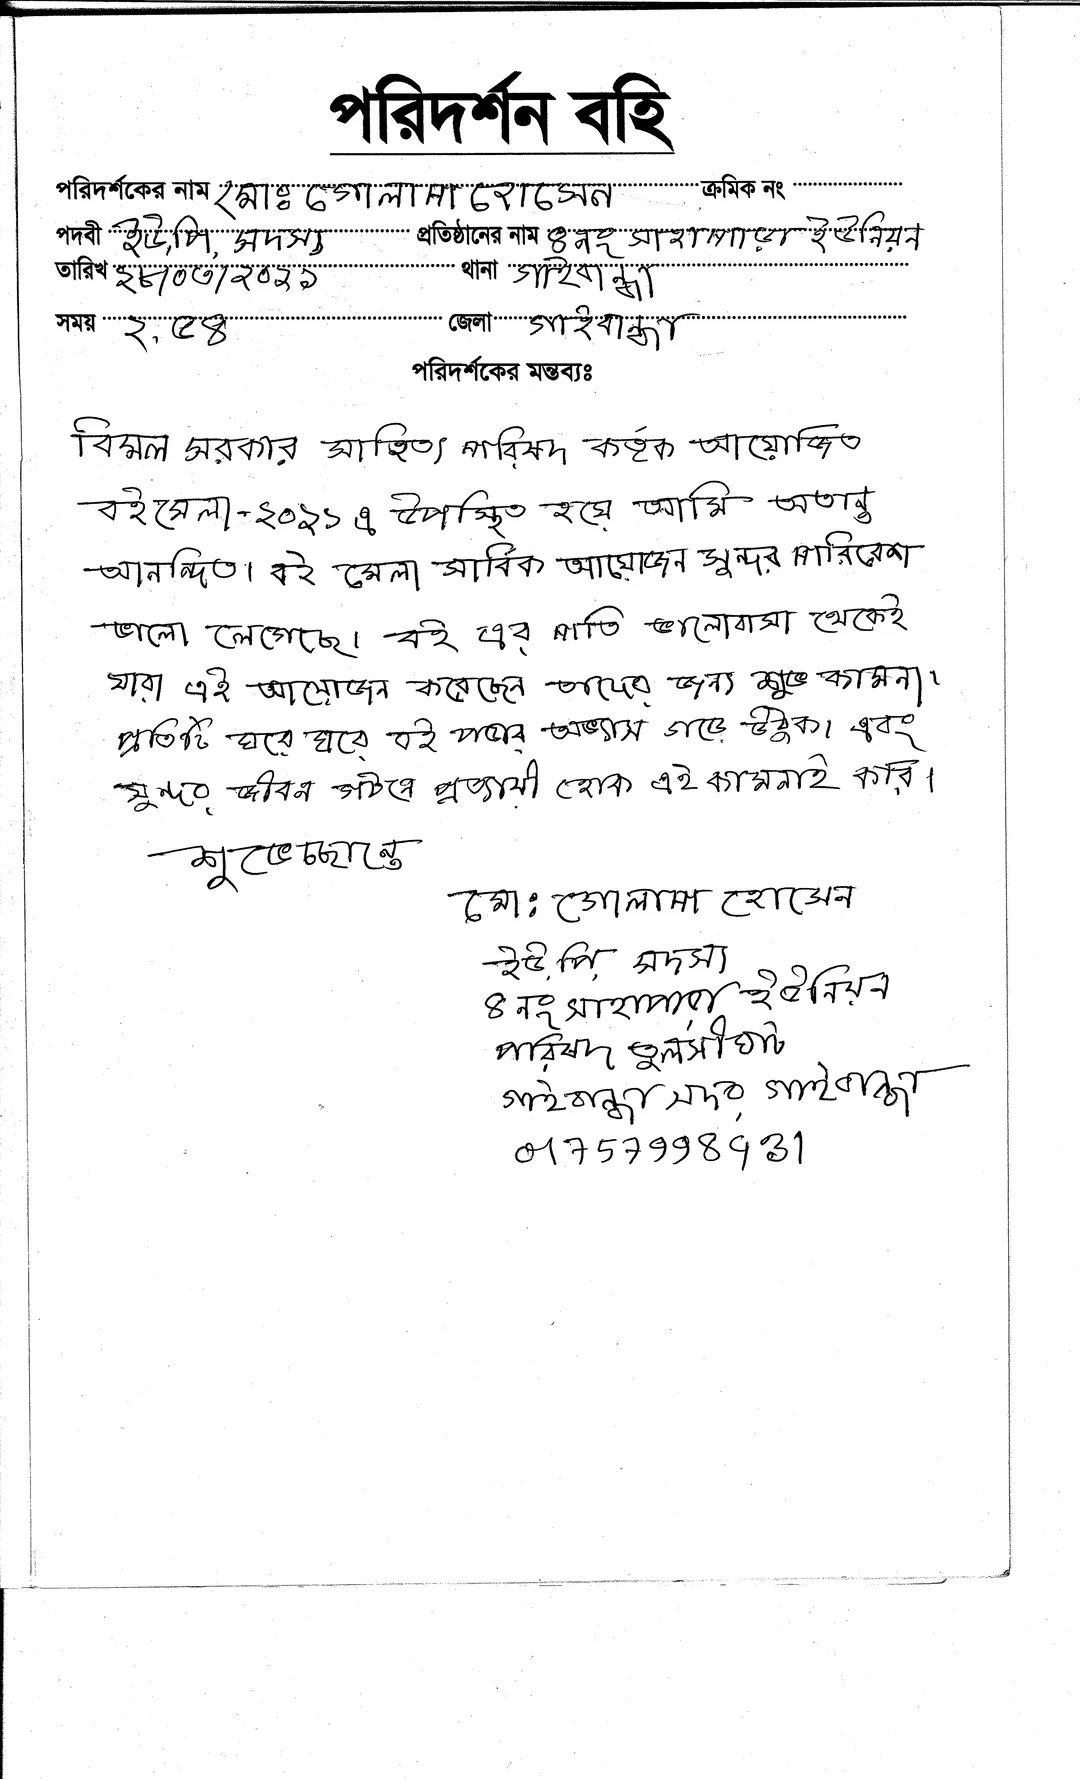 পরিদর্শন বহি
পরিদর্শকের নাম মোঃ গোলাম হোসেন ক্রমিক নং
পদবী ইউ,পি, সদস্য প্রতিষ্ঠানের নাম ৪নং সাহাপাড়া ইউনিয়ন
তারিখ ২৮/০৩/২০২১ থানা গাইবান্ধা
সময় ২.৫৪ জেলা গাইবান্ধা
পরিদর্শকের মন্তব্যঃ
বিমল সরকার সাহিত্য পরিষদ কর্তৃক আয়োজিত
বইমেলা-২০২১ এ উপস্থিত হয়ে আমি অত্যন্ত
আনন্দিত। বই মেলা সার্বিক আয়োজন সুন্দর পরিবেশ
ভালো লেগেছে। বই এর প্রতি ভালোবাসা থেকেই
যারা এই আয়োজন করেছেন তাদের জন্য শুভ কামনা।
প্রতিটি ঘরে ঘরে বই পড়ার অভ্যাস গড়ে উঠুক। এবং
সুন্দর জীবন গঠনে প্রত্যায়ী হোক এই কামনাই করি।
শুভেচ্ছান্তে
মো: গোলাম হোসেন
ইউ,পি, সদস্য
৪ নং সাহাপাড়া ইউনিয়ন
পরিষদ তুলসীঘাট
গাইবান্ধা সদর, গাইবান্ধা